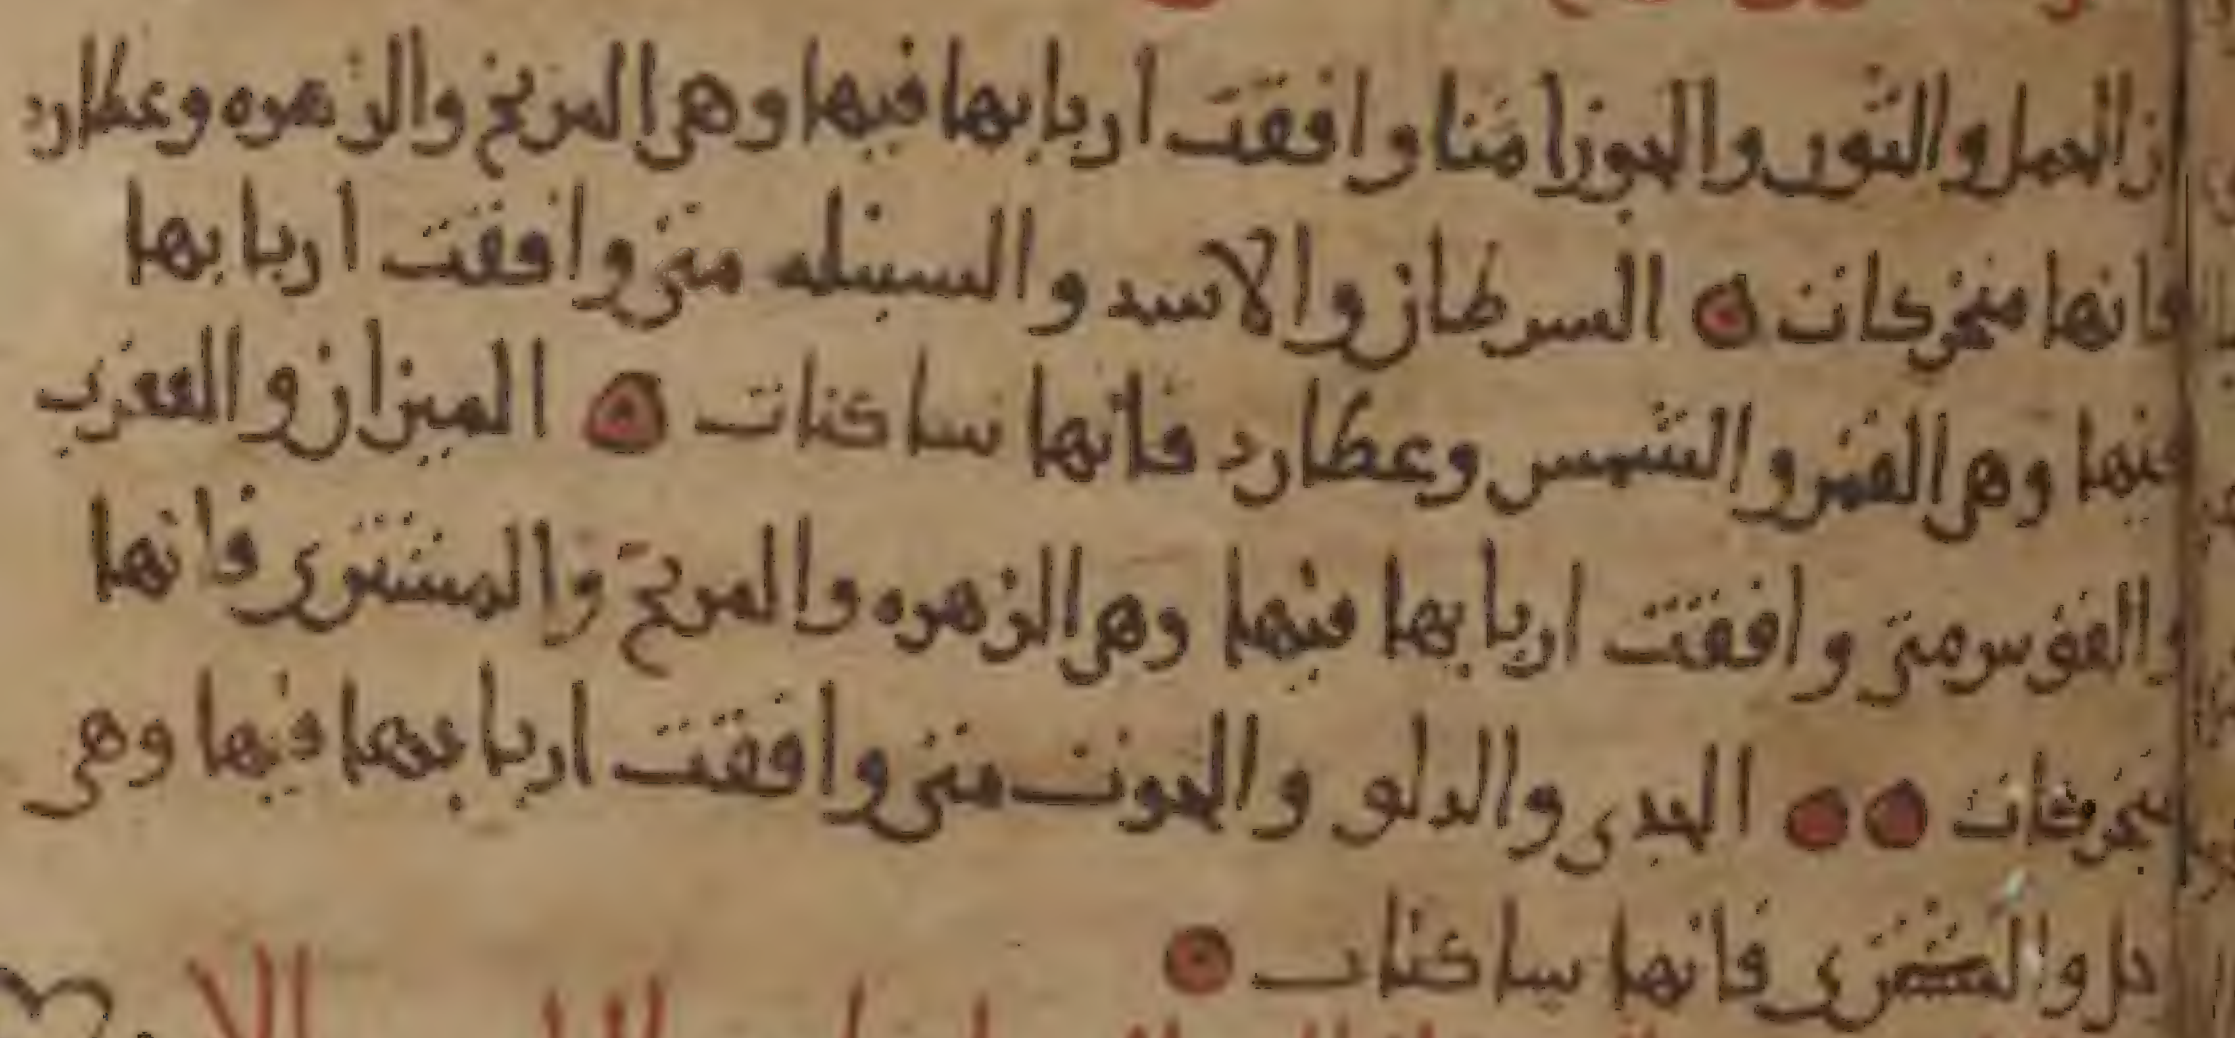 ان الحمل والثور والجوزا متا وافقت اربابها فيها وهي المريخ والزهره وعطارد
فانها متحركات السرطان والاسد والسنبله متى وافقت اربابها
فيها وهي القمر والشمس وعطارد فانها ساكنات الميزان والعقرب
والقوس متى وافقت اربابها فيها وهي الزهره والمريخ والمشترى فانها
متحركات الجدى والدلو والحوت متى وافقت اربابها فيها وهي
زحل والمشترى فانها ساكنات